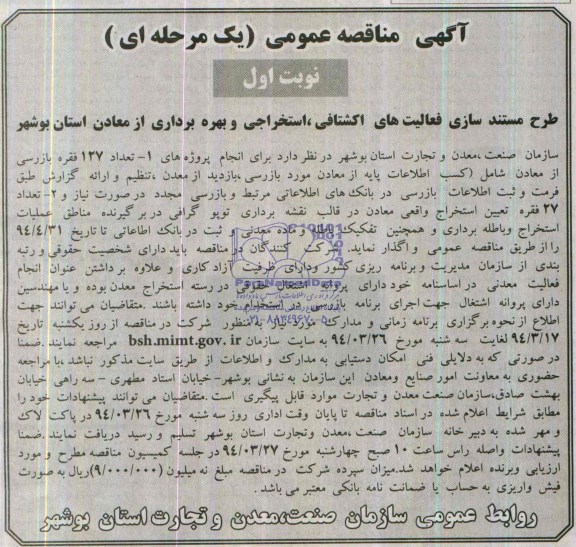 آگهی مناقصه عمومی (یک مرحله ای)
نوبت اول
طرح مستند سازی فعالیت های اکتشافی ،استخراجی و بهره برداری از معادن استان بوشهر
سازمان صنعت ،معدن و تجارت استان بوشهر در نظر دارد برای انجام پروژه های ۱- تعداد ۱۲۷ فقره بازرسی
از معادن شامل (کسب اطلاعات پایه از معادن مورد بازرسی ،بازدید از معدن ،تنظیم و ارائه گزارش طبق
فرمت و ثبت اطلاعات بازرسی در بانک های اطلاعاتی مرتبط و بازرسی مجدد در صورت نیاز و ۲- تعداد
۲۷ فقره تعیین استخراج واقعی معادن در قالب نقشه برداری توپو گرافی در بر گیرنده مناطق عملیات
استخراج وباطله برداری و همچنین تفکیک باطله و ماده معدنی و ثبت در بانک اطاعاتی تا تاریخ ۹۴/۴/۳۱
را از طریق مناقصه عمومی واگذار نماید. شرکت کنندگان در مناقصه باید دارای شخصیت حقوقی و رتبه
بندی از سازمان مدیریت و برنامه ریزی کشور ودارای ظرفیت آزاد کاری و علاوه بر داشتن عنوان انجام
فعالیت معدنی در اساسنامه خود دارای پروانه اشتغال حقوقی در رسته استخراج معدن بوده و یا مهندسین
دارای پروانه اشتغال جهت اجرای برنامه بازرسی در استخدام خود داشته باشند .متقاضیان می توانند جهت
اطلاع از نحوه برگزاری برنامه زمانی و مدارک مورد نیاز به منظور شرکت در مناقصه از روز یکشنبه تاریخ
۹۴/۳/۱۷ لغایت سه شنبه مورخ ۹۴/۰۳/۲۶ به سایت سازمان bsh.mimt.gov.ir مراجعه نمایند .ضمنا
در صورتی که به دلایلی فنی امکان دستیابی به مدارک و اطلاعات از طریق سایت مذکور نباشد ،با مراجعه
حضوری به معاونت امور صنایع ومعادن این سازمان به نشانی بوشهر- خیابان استاد مطهری - سه راهی خیابان
بهشت صادق،سازمان صنعت معدن و تجارت موارد قابل پیگیری است .متقاضیان می توانند پیشنهادات خود را
مطابق شرایط اعلام شده در اسناد مناقصه تا پایان وقت اداری روز سه شنبه مورخ ۹۴/۰۳/۲۶ در پاکت لاک
و مهر شده به دبیر خانه سازمان صنعت ،معدن وتجارت استان بوشهر تسلیم و رسید دریافت نمایند .ضمنا
پیشنهادات واصله راس ساعت ۱۰ صبح چهارشنبه مورخ ۹۴/۰۳/۲۷ در جلسه کمیسیون مناقصه مطرح و مورد
ارزیابی وبرنده اعلام خواهد شد.میزان سپرده شرکت در مناقصه مبلغ نه میلیون (۹/۰۰۰/۰۰۰)ریال به صورت
فیش واریزی به حساب یا ضمانت نامه بانکی معتبر می باشد .
روابط عمومی سازمان صنعت،معدن و تجارت استان بوشهر